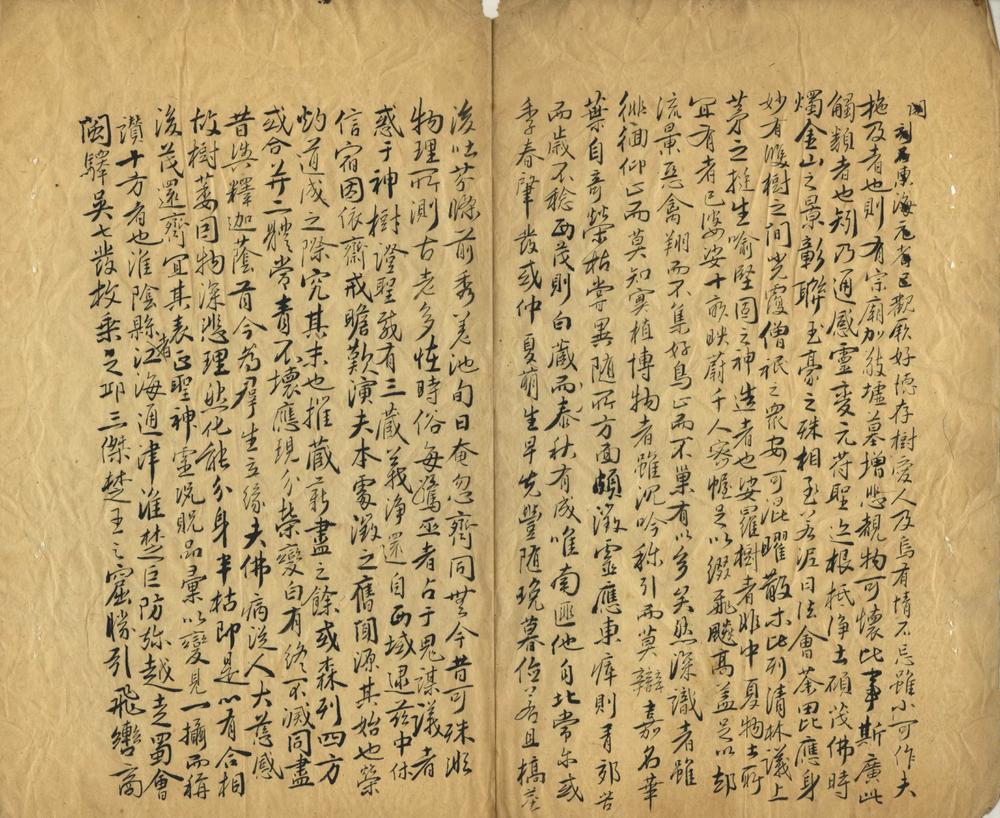 石東海觀厥好德存樹愛人及烏有情不忘雖小可作夫
施及者也則有宗廟加敬墟墓增悲覩物可懷比事斯廣此
觸類者也矧乃通感靈變元符聖迹根柢浄土碩茂佛時
燭金山之景彰聯玉豪之殊相至若泥日法會荼毘應身
妙有雙樹之間光覆僧祇之衆安可混曜散木比列清林議上
茅之挺生喻堅固之神造者也娑羅樹者非中夏物土所
宜有者已婆娑十畝映蔚千人密幄足以綴飛飈高盖足以却
流景惡禽翔而不集好鳥止而不巢有以多矣然深識者雖
徘徊仰止而莫知冥植博物者雖沉吟称引而莫辯嘉名華
葉自奇榮枯嘗異随所方面頗徵靈應東瘁則青郊苦
而歲不稔西茂則白藏而泰秋有成唯南匪他自北常尔或
季春肇發或仲夏萌生早先豐随晚暮儉若且槁莖
後吐芬條前秀差池旬日奄忽齊同無今昔可殊非
物理所測古老多怪時俗每驚巫者占于鬼謀議者
惑于神樹澄聖載有三藏義浄還自西域逮茲中休
信宿因依齋戒瞻歎演夫本處徵之舊聞源其始也榮
灼道成之際究其末也摧藏薪盡之餘或森列四方
或合并二體常青不壞應現分榮變自有終不滅同盡
昔與釋迦蔭首今為群生立緣夫佛病從人大慈感
故樹萎因物深悲理然化能分身半枯即是以有合相
後茂還齊宜其表正聖神靈况貺品彙以變見一攝而稱
讚十方者也淮陰縣者江海通津淮楚巨防弥越走蜀會
閩驛吳七發枚乘之邱三傑楚王之窟勝引飛轡商